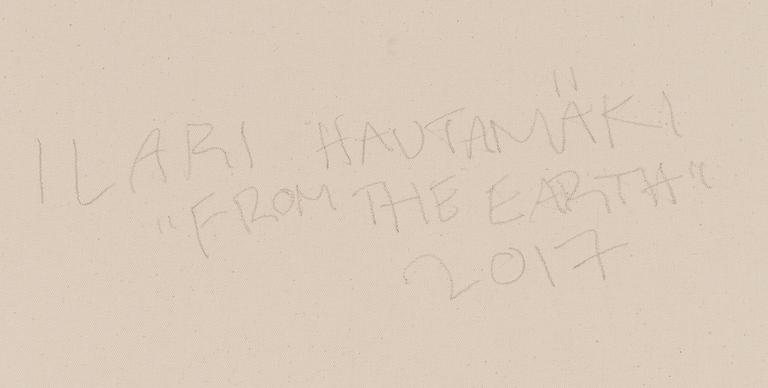 ILARI HAUTAMÄKI
"FROM THE EARTH"
2017